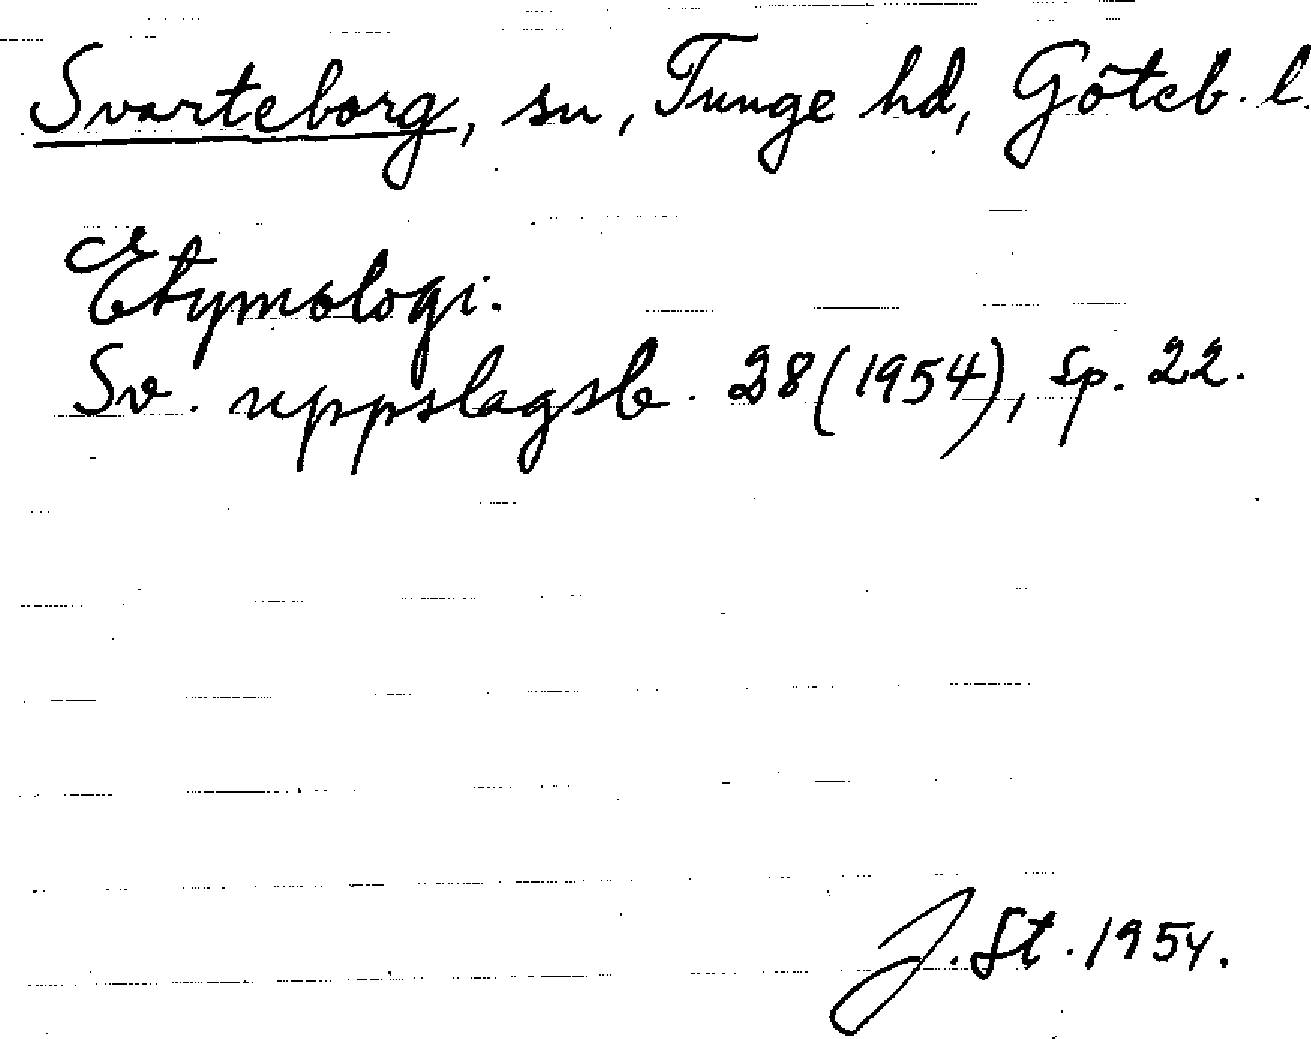 Svarteborg, sn, Tunge hd, Göteb. l.
Etymologi.
Sv. uppslagsb. 28 (1954), sp. 22.
J. St. 1954.